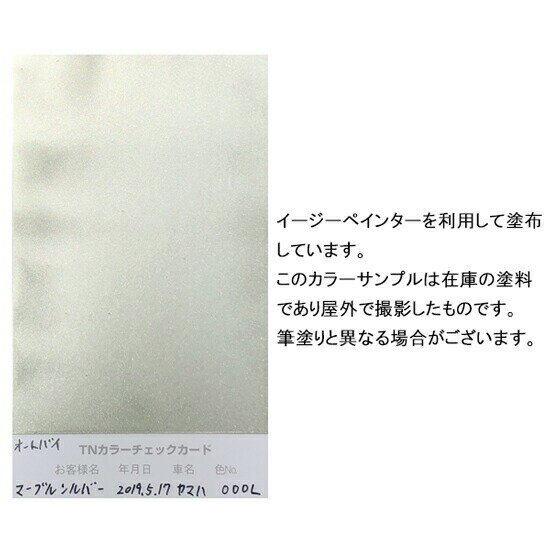 イージーペインターを利用して塗布
しています。
このカラーサンプルは在庫の塗料
であり屋外で撮影したものです。
筆塗りと異なる場合がございます。
オートバイ
TNカラーチェックカード
お客様名 年月日 車名 色No.
マーブルシルバー 2019.5.17 ヤマハ 000L